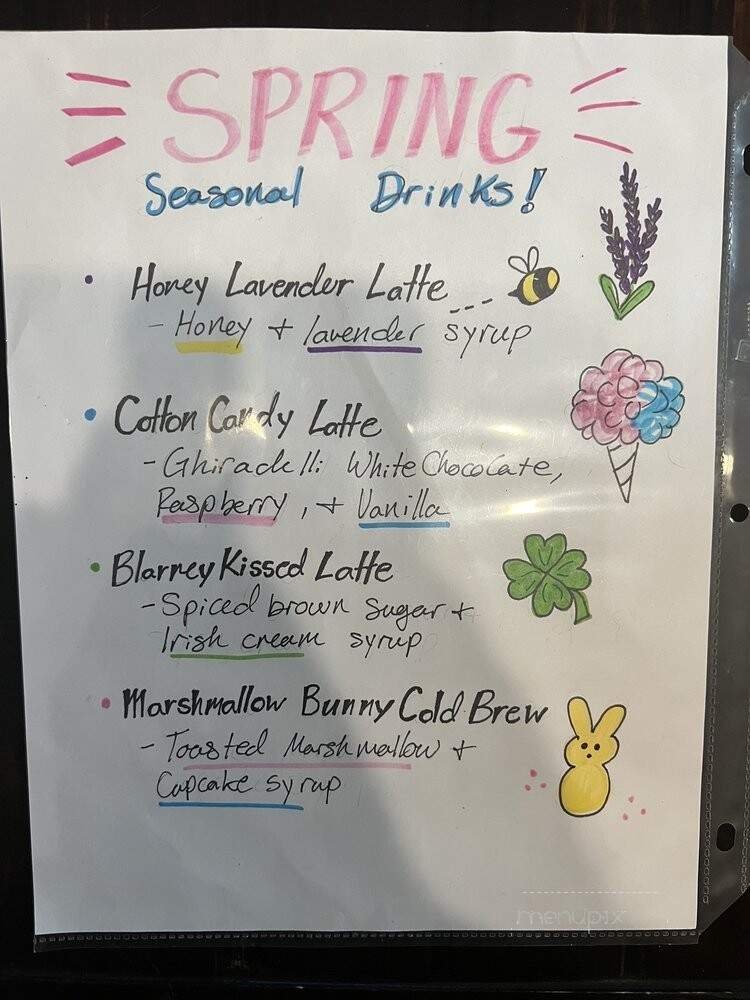 SPRING
Seasonal Drinks!
• Honey Lavender Latte
- Honey + lavender syrup
• Cotton Candy Latte
- Ghiradelli White Chocolate,
Raspberry, + Vanilla
• Blarney Kissed Latte
- Spiced brown sugar +
Irish cream syrup
• Marshmallow Bunny Cold Brew
- Toasted Marshmallow +
Cupcake syrup
menupix